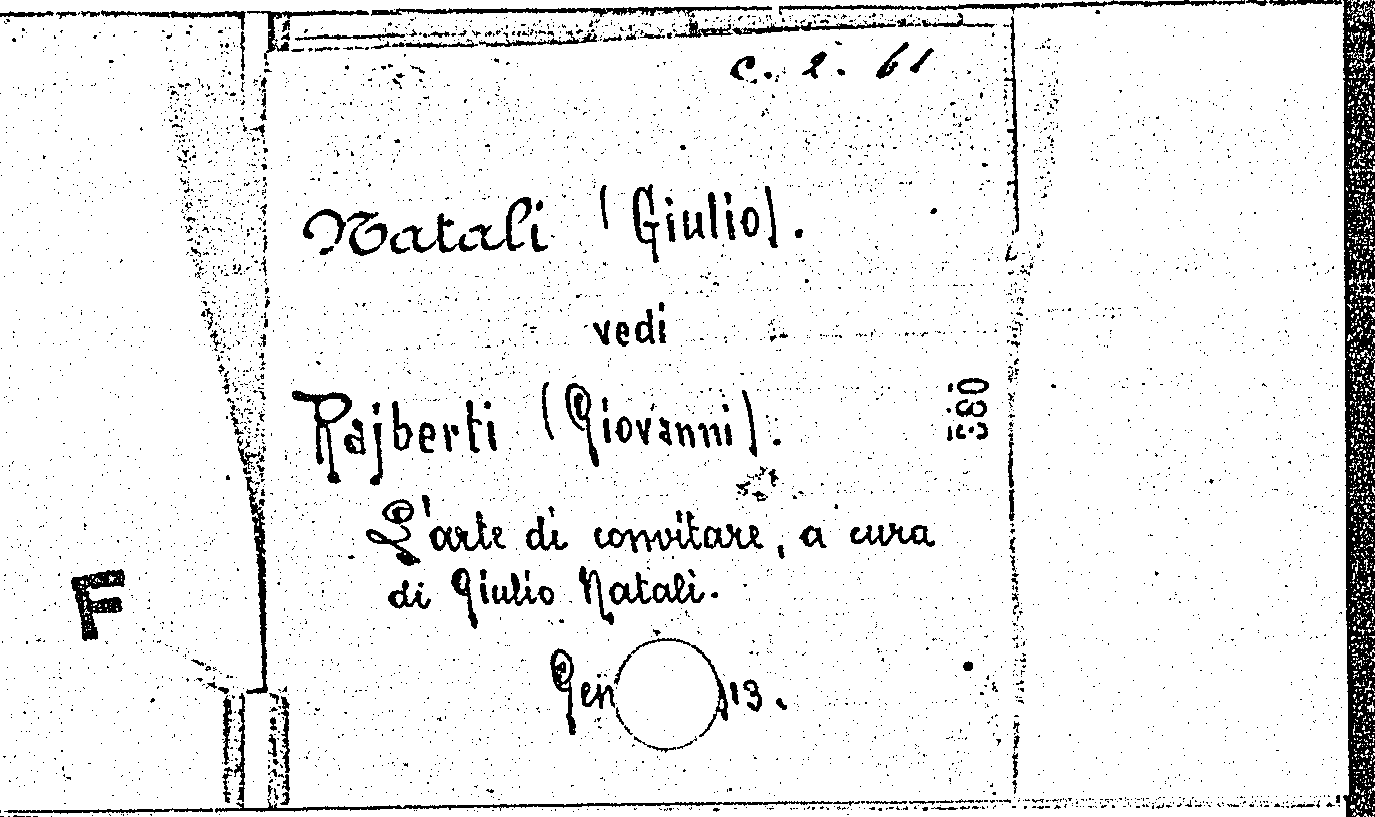 c. 2. 61
Natali (Giulio).
vedi
Rajberti (Giovanni).
380
L'arte di convitare, a cura
di Giulio Natali.
F
Gen 13.